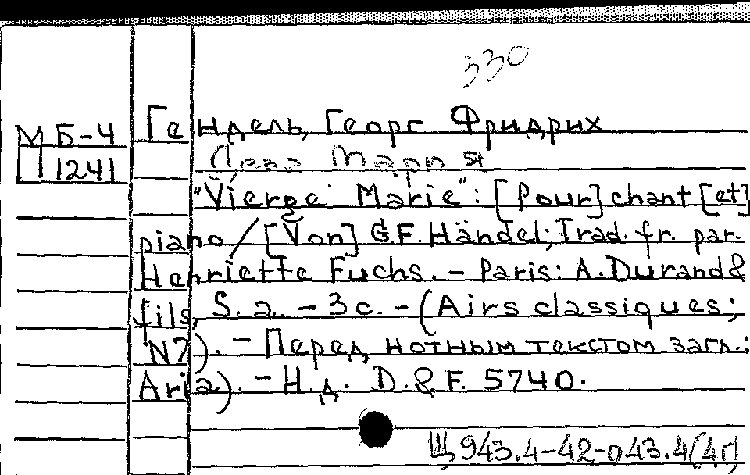 330
МБ-4 Гендель, Георг Фридрих
П 1241 Дева Мария
"Vierge Marie": [Pour] chant [et]
piano / [Von] G.F. Händel; Trad. fr. par.
Henriette Fuchs. - Paris: A. Durand &
fils, S. a. - 3 с. - (Airs classiques;
N7). - Перед нотным текстом загл.:
Aria). - Н.д. D. & F. 5740.
Щ943.4-42-043.4(4П